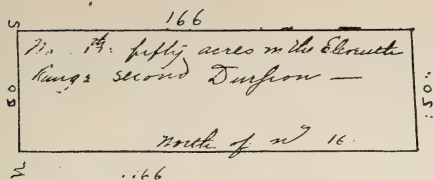 166
S
No. 17th fifty acres in the Eleventh
Range second Division —
50
:50:
North of No 16.
N
..166